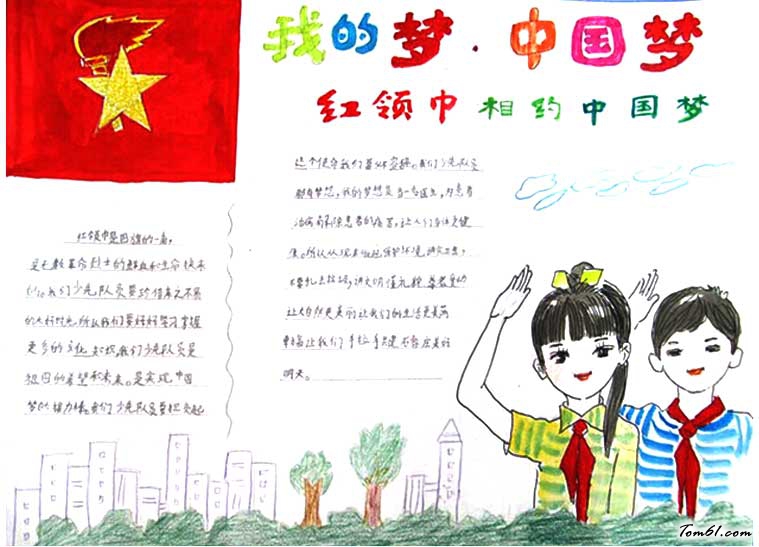 我的梦·中国梦
红领巾相约中国梦
红领巾是国旗的一角,
是无数革命烈士的鲜血和生命换来
我们少先队员要珍惜来之不易
的大好时光,所以我们要好好学习,掌握
更多的文化知识,我们少先队员是
祖国的希望和未来。是实现中国
梦的接力棒。我们少先队员要担负起
这个使命我们首先
都有梦想,我的梦想是当一名医生,为患者
治病解除患者的痛苦,让人们身体更健
康。所以从现在做起保护环境,讲究卫生,
不要乱丢垃圾,讲文明懂礼貌
让大自然更美丽让我们的生活更美满
幸福让我们手拉手共建
明天。
Tom61.com